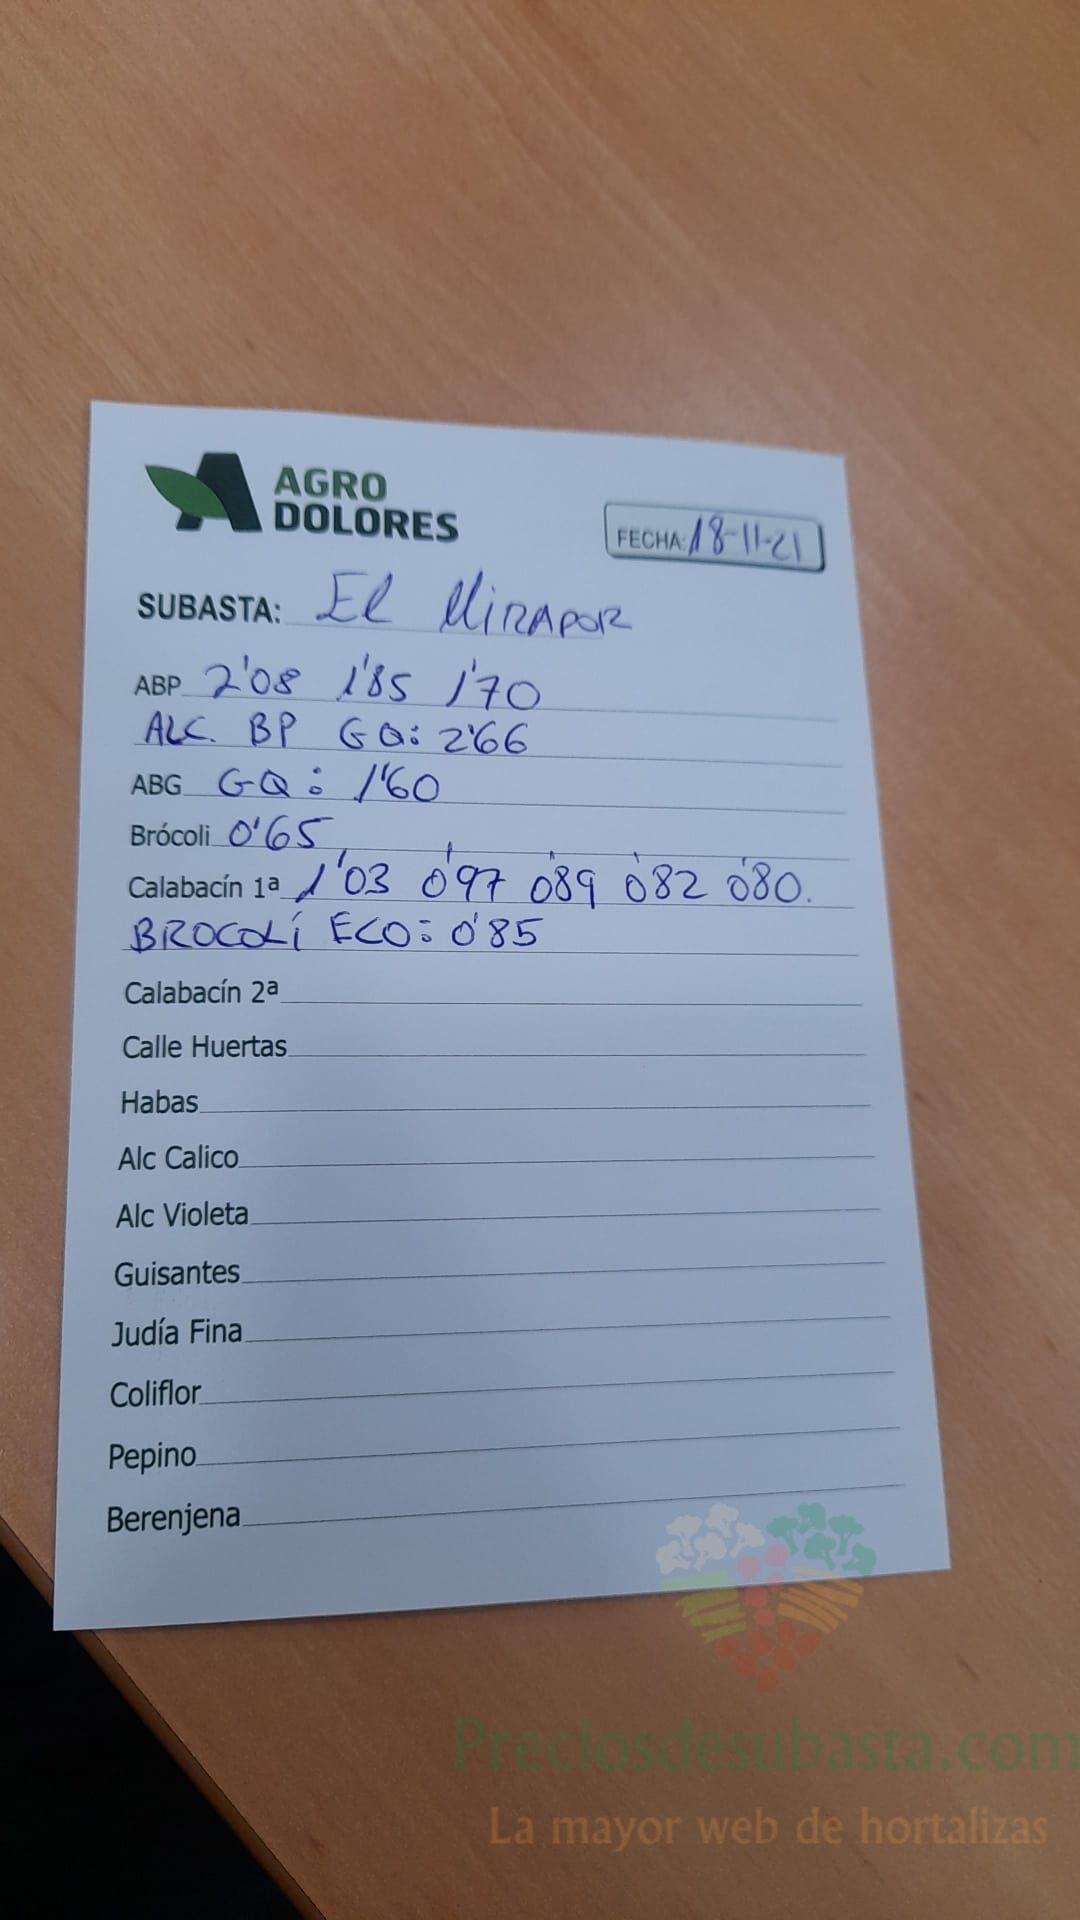 AGRO
DOLORES
FECHA: 18-11-21
SUBASTA: El Mirador
ABP 2'08 1'85 1'70
ALC. BP GQ: 2'66
ABG GQ: 1'60
Brócoli 0'65
Calabacín 1ª 1'03 0'97 0'89 0'82 0'80.
BROCOLÍ ECO: 0'85
Calabacín 2ª
Calle Huertas
Habas
Alc Calico
Alc Violeta
Guisantes
Judía Fina
Coliflor
Pepino
Berenjena
Preciosdesubasta.com
La mayor web de hortalizas